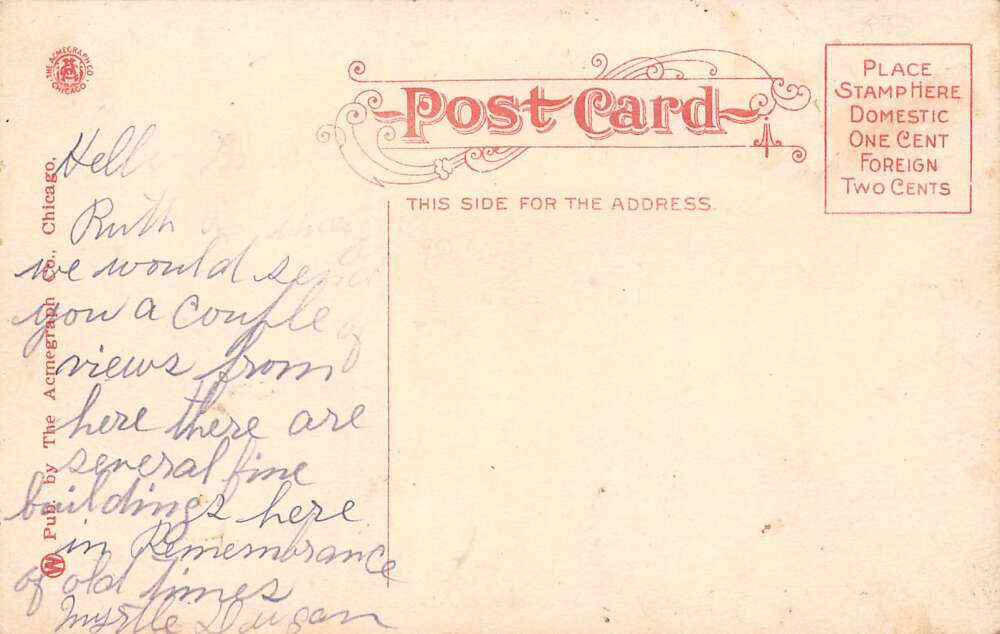 THE ACMEGRAPH CO.
CHICAGO
Post Card
PLACE
STAMP HERE
DOMESTIC
ONE CENT
FOREIGN
TWO CENTS
THIS SIDE FOR THE ADDRESS.
W Pub. by The Acmegraph Co., Chicago.
Hell
Ruth
we would send
you a couple of
views from
here there are
several fine
buildings here
in Remembrance
of old times
Myrtle Dugan